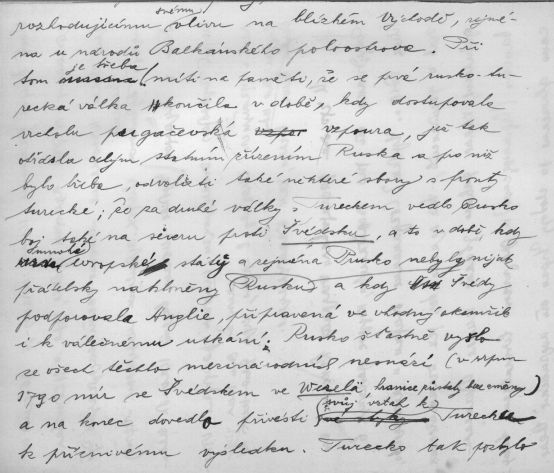 rozhodujícímu svému vlivu na blízkém východě, zejmé-
na u národů Balkánského poloostrova. Při
tom je třeba míti na paměti, že se prvé rusko-tu-
recká válka skončila v době, kdy dostupovala
vrcholu pugačevská vzpor vzpoura, jež tak
otřásla celým státním zřízením Ruska a po níž
bylo třeba, odvolati také některé sbory s fronty
turecké; že za druhé války s Tureckem vedlo Rusko
boj také na severu proti Švédsku, a to v době, kdy
evropské státy a zejména Prusko nebyly nijak
přátelsky nakloněny Rusku a kdy Švédy
podporovala Anglie, připravená ve vhodný okamžik
i k válečnému utkání. Rusko šťastně vyšlo
ze všech těchto mezinárodních nesnází (v srpnu
1790 mír se Švédskem ve Werelä hranice zůstaly beze změny)
a na konec dovedlo přivésti svůj vztah k Turecku
k příznivému výsledku. Turecko tak pozbylo